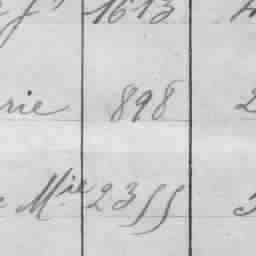 1613
rie 898 2
Mie 2355